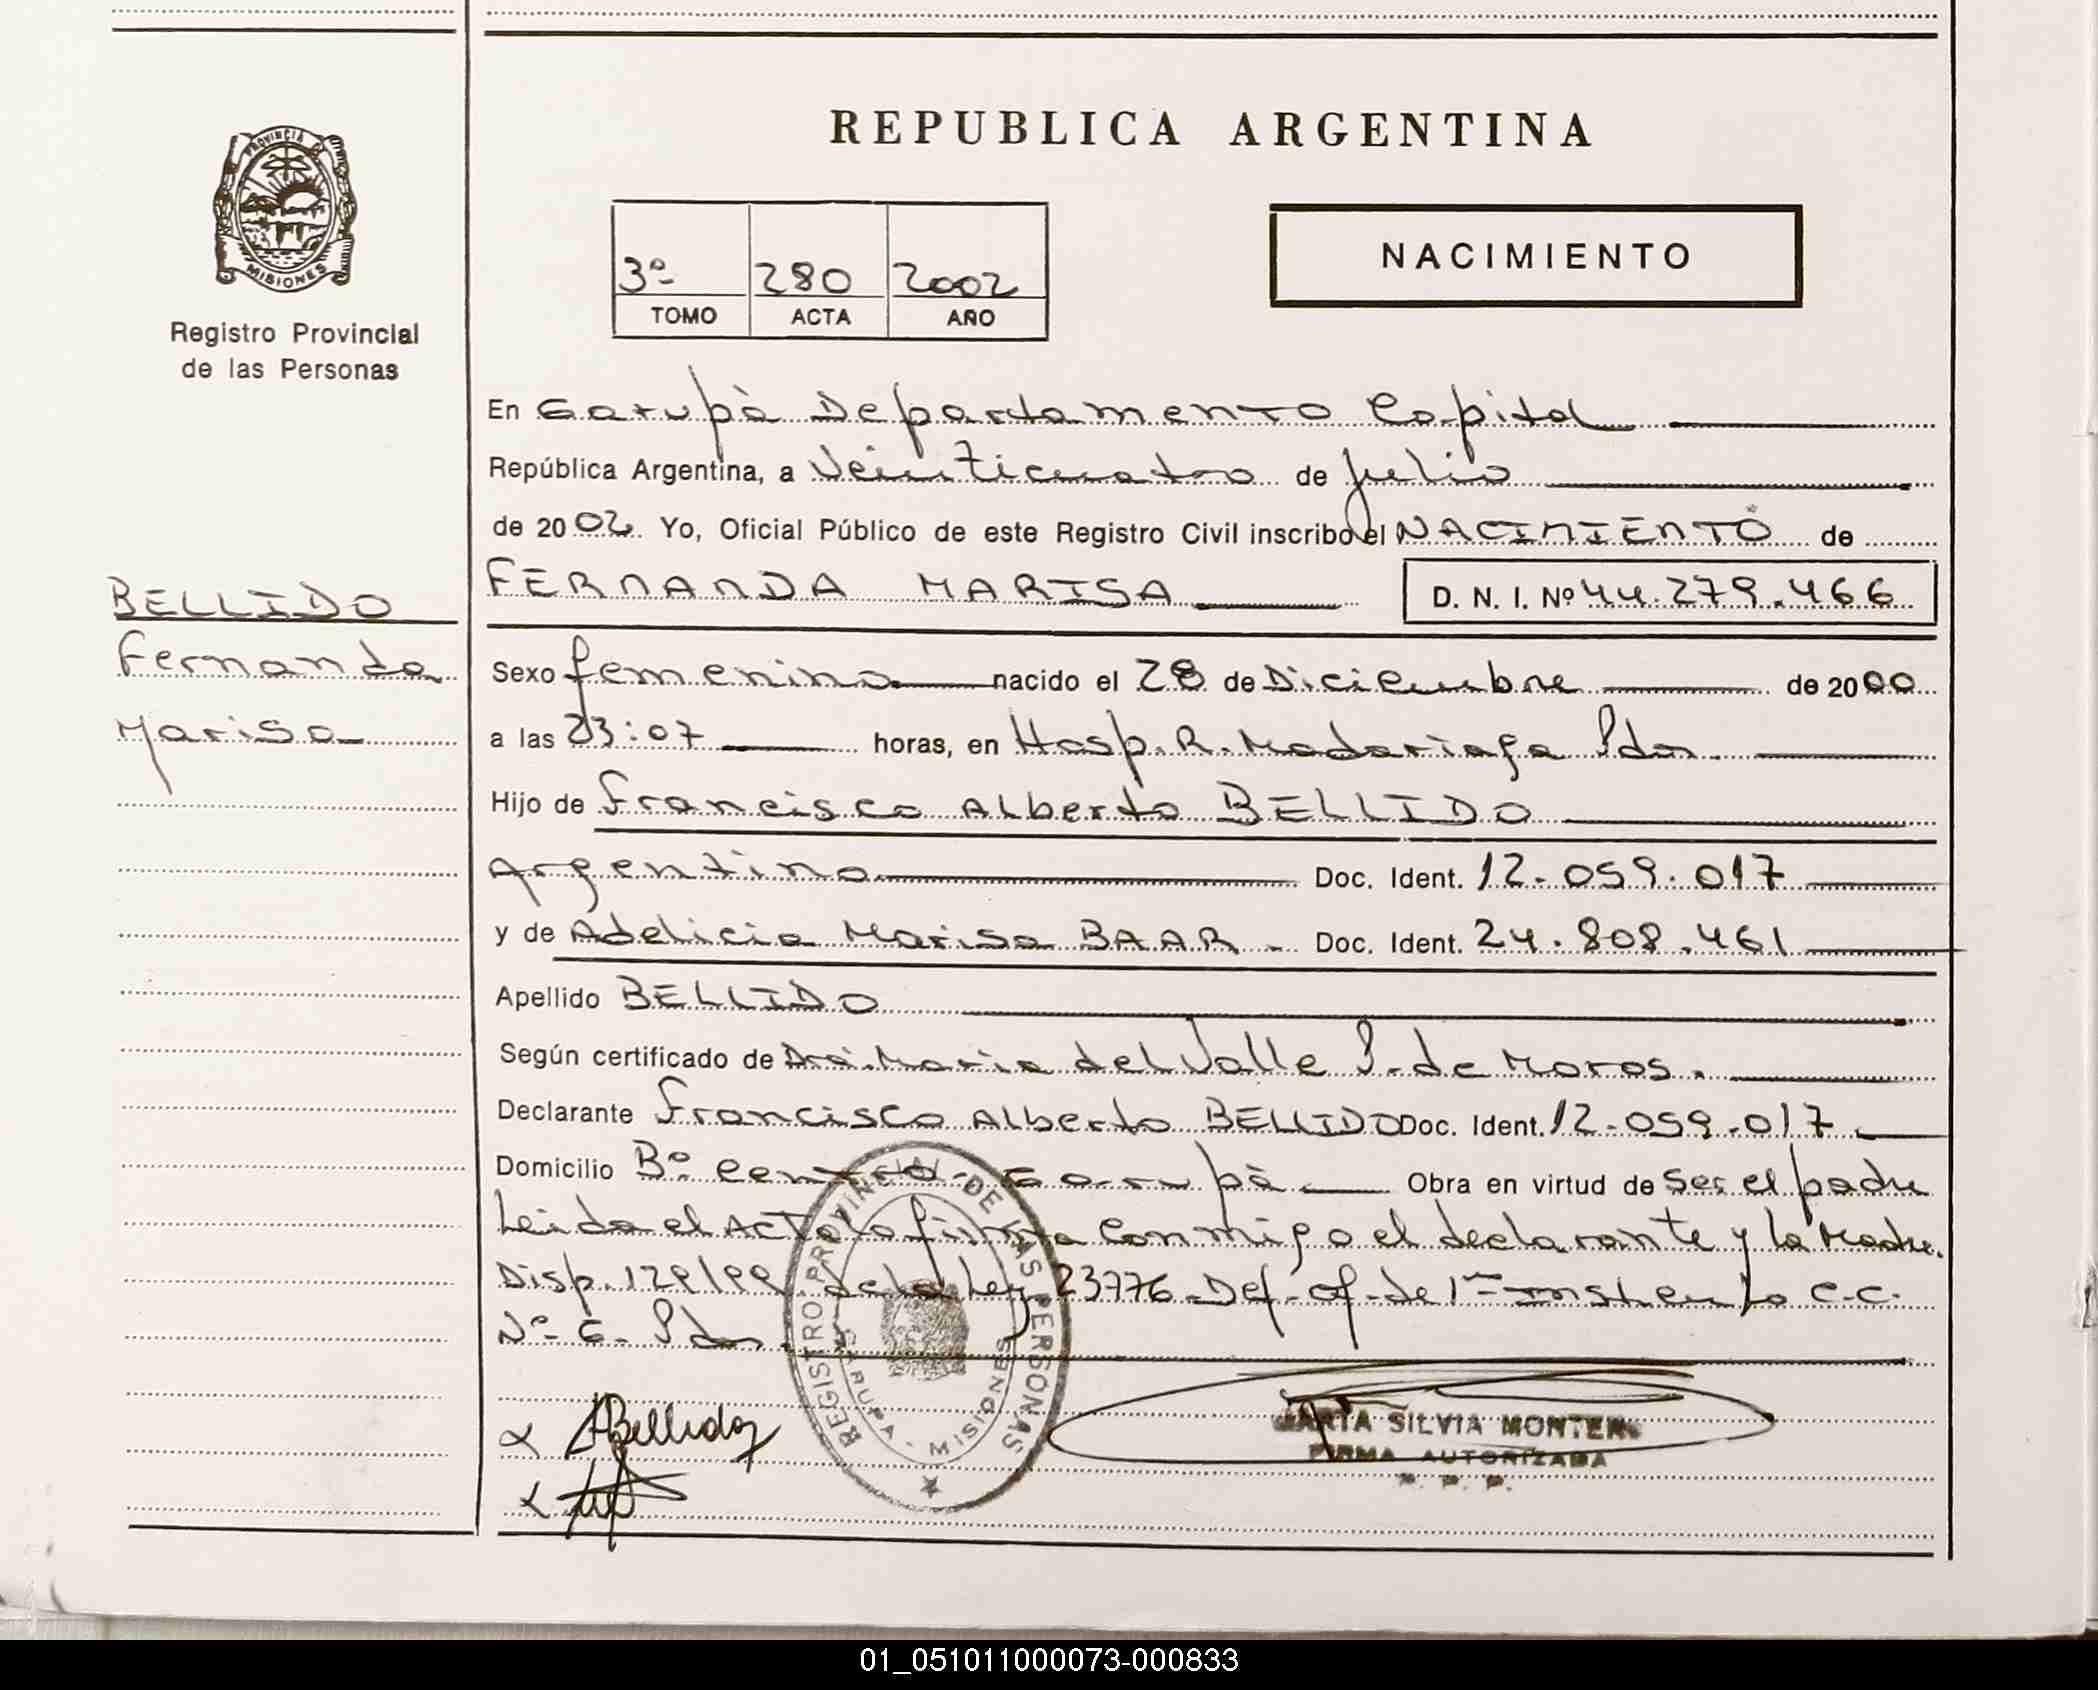 REPUBLICA ARGENTINA
PROVINCIA
MISIONES
Registro Provincial
de las Personas
3º 280 2002
TOMO ACTA AÑO
NACIMIENTO
En Garupà Departamento Capital
República Argentina, a Veinticuatro de Julio
de 2002. Yo, Oficial Público de este Registro Civil inscribo el NACIMIENTO de
FERNANDA MARISA D. N. I. Nº 44.279.466
BELLIDO
Fernanda
Marisa
Sexo femenino nacido el 28 de Diciembre de 2000
a las 23:07 horas, en Hosp. R. Madariaga Pdas.
Hijo de Francisco Alberto BELLIDO
Argentino Doc. Ident. 12.059.017
y de Adelicia Marisa BAAR - Doc. Ident. 24.808.461
Apellido BELLIDO
Según certificado de Dra. Maria del Valle P. de Moros.
Declarante Francisco Alberto BELLIDO Doc. Ident. 12.059.017
Domicilio Bº Centro - Garupà Obra en virtud de ser el padre
Leida el ACTA la firma conmigo el declarante y la Madre.
Disp. 129/99 de la Ley 23776. Def. of. de 1ª C.C.
Nº 6- Pdas.
REGISTRO PROVINCIAL DE LAS PERSONAS
GARUPA - MISIONES
Bellido
MARTA SILVIA MONTERO
FIRMA AUTORIZADA
R. P. P.
01_051011000073-000833